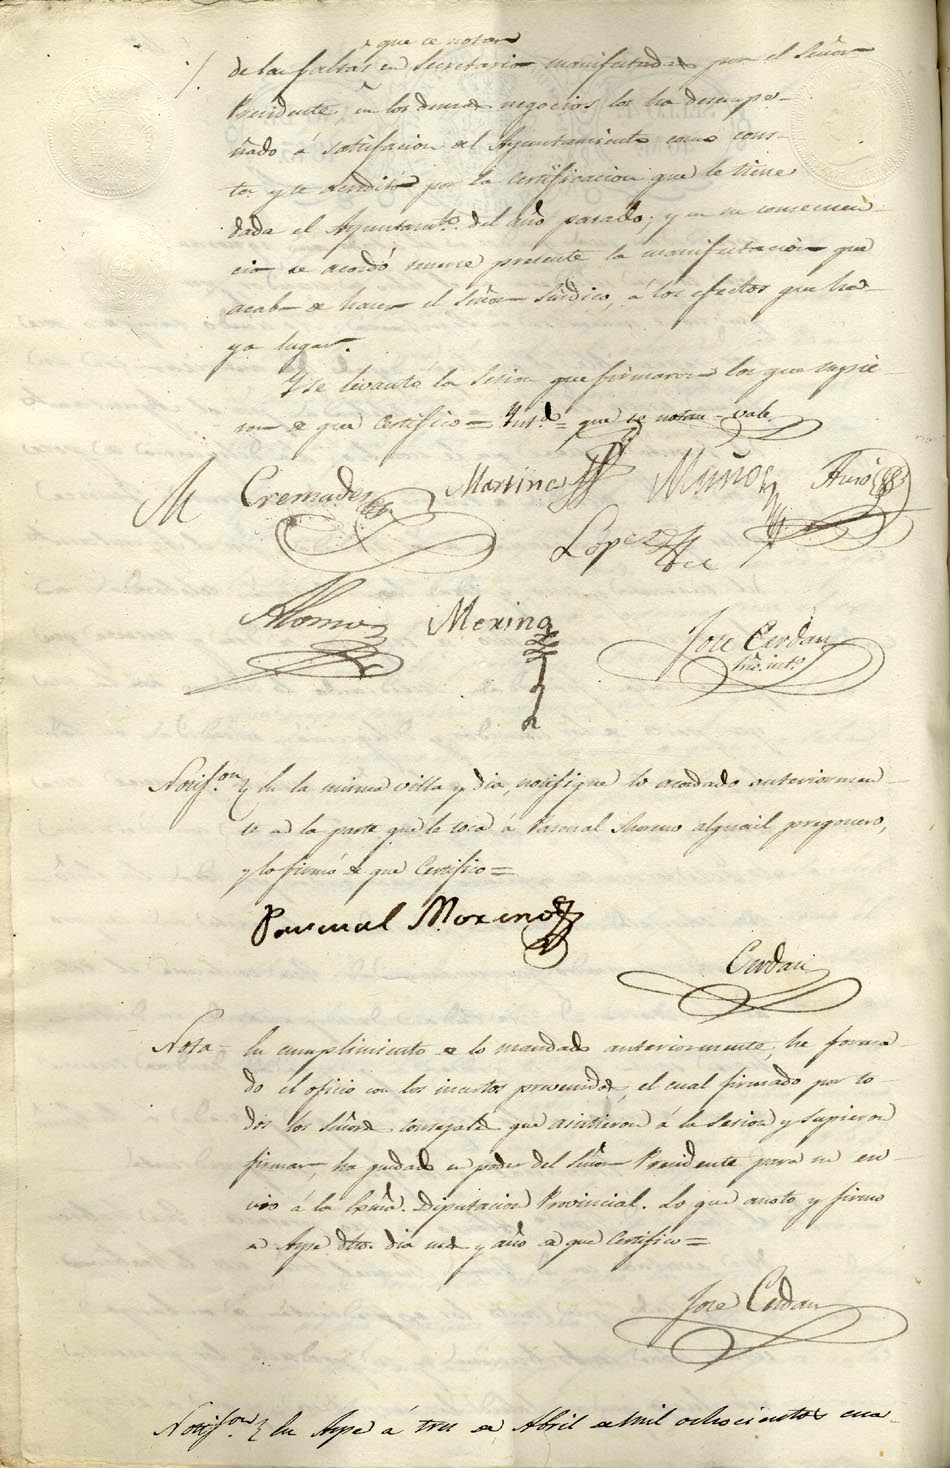 que se notan
de las faltas en Secretaria manifestadas por el Señor
Presidente, en los demas negocios los ha desempe-
ñado á satisfacion del Ayuntamiento como cons-
ta y se acredita por la certificacion que le tiene
dada el Ayuntamto. del año pasado; y en su consecuen-
cia se acordó tenerse presente la manifestacion que
acaba de hacer el Señor Sindico, á los efectos que ha-
ya lugar.
Y se levantó la Sesion que firmaron los que supie-
ron de que Certifico = = que se notan = vale
M Cremades Martinez Muñoz
Lopez
Alonso Merino Jose Cerdan
Srio. into.
Notifon. En la misma villa y dia, notifique lo acordado anteriormen
te a la parte que le toca á Pascual Moreno alguacil pregonero,
y lo firmó de que Certifico =
Pascual Moreno
Cerdan
Nota = En cumplimiento de lo mandado anteriormente, he forma
do el oficio con los insertos prevenidos, el cual firmado por to-
dos los Señores Concejales que asistieron á la Sesion y supieron
firmar, ha quedado en poder del Señor Presidente para su en-
vio á la Exma. Diputacion Provincial. Lo que anoto y firmo
en Aspe dho. dia mes y año de que Certifico =
Jose Cerdan
Notifon. En Aspe á tres de Abril de mil ochocientos cua-